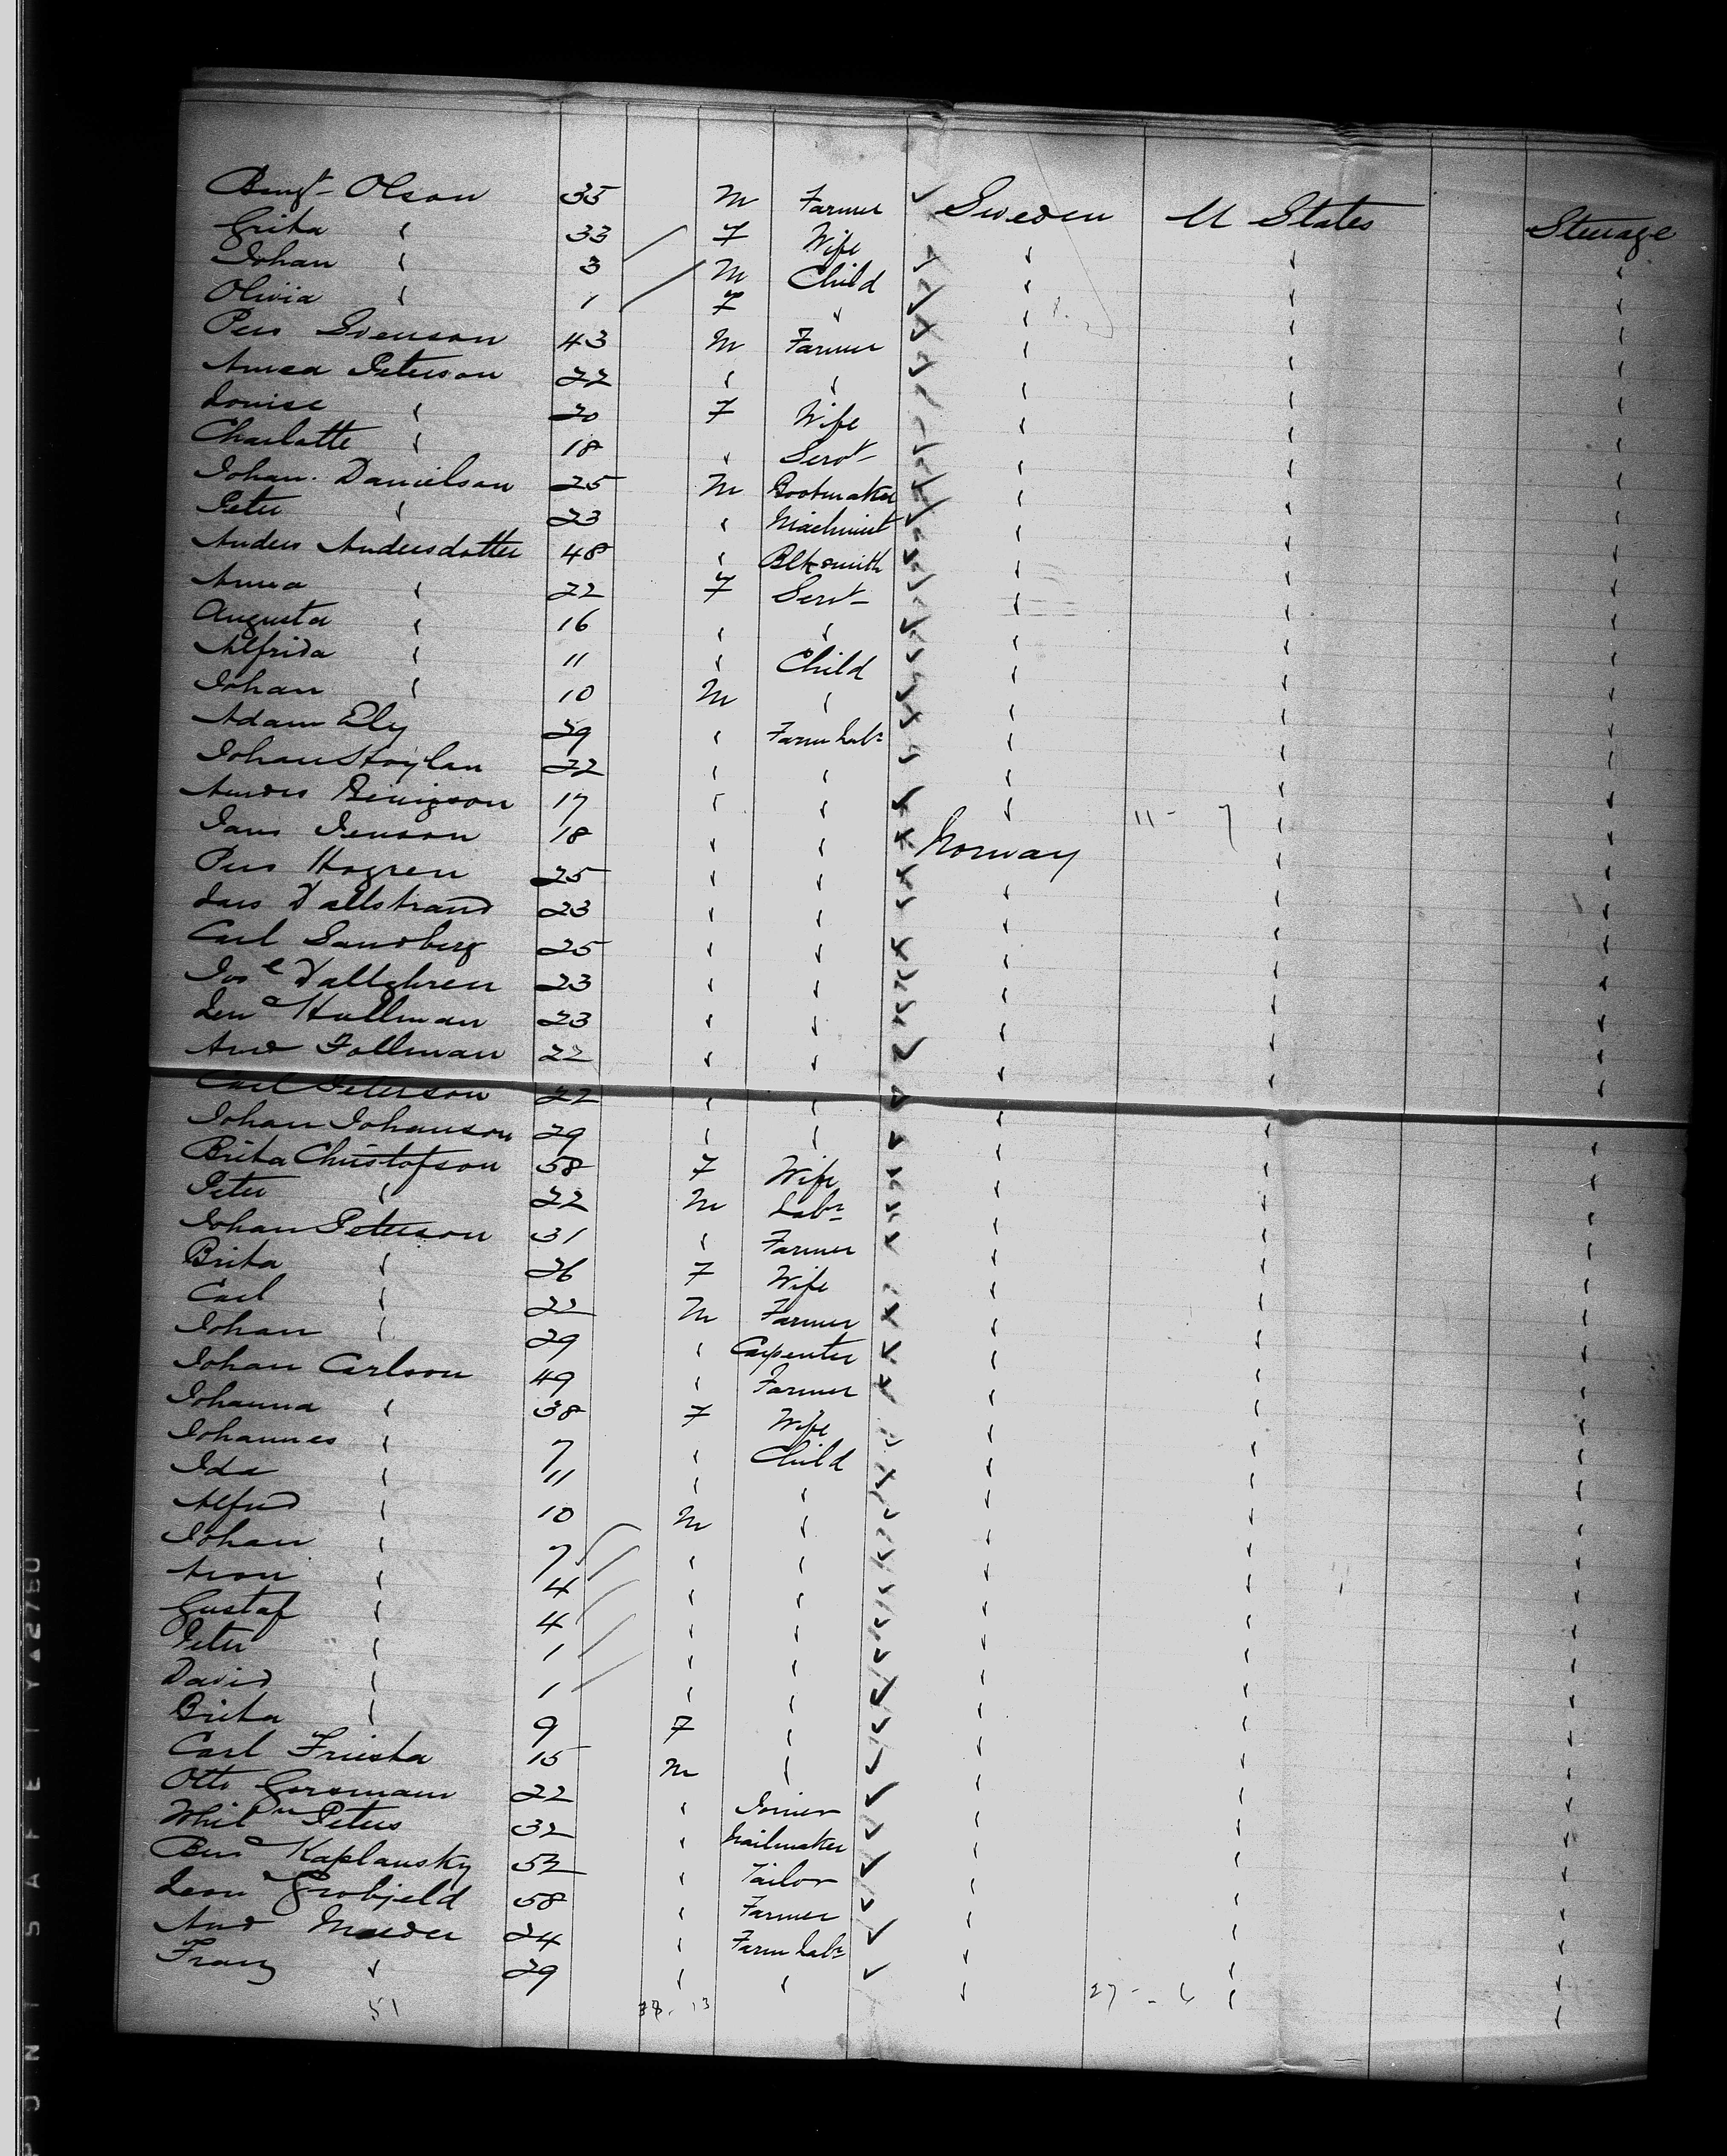 Bengt Olson 35 M Farmer Sweden U States Steerage
Grita " 33 F Wife " " "
Johan " 3 M Child " " "
Olivia " 1 F " " " "
Pers Svenson 43 M Farmer " " "
Peterson 22 " " " " "
Louise " 20 F Wife " " "
Charlotte " 18 " Servt " " "
Johan. Danielson 25 M Bootmaker " " "
Peter " 23 " Machinist " " "
Anders Andersdotter 48 " Blksmith " " "
Anna " 22 F Servt " " "
Augusta " 16 " " " " "
Alfrida " 11 " Child " " "
Johan " 10 M " " " "
Adam Ely 29 " Farm Labr " " "
Johan 22 " " " " "
17 " " " " "
Jans Jenson 18 " " Norway " "
Pers Hogren 25 " " " " "
Lars Dallstrand 23 " " " " "
Carl Sandberg 25 " " " " "
Jose Dallghren 23 " " " " "
Hullman 23 " " " " "
And Follman 22 " " " " "
Carl Peterson 22 " " " " "
Johan Johanson 29 " " " " "
Brita Christofson 58 F Wife " " "
Peter " 22 M Labr " " "
Johan Peterson 31 " Farmer " " "
Brita " 26 F Wife " " "
Carl " 22 M Farmer " " "
Johan " 29 " Carpenter " " "
Johan Carlson 49 " Farmer " " "
Johanna " 38 F Wife " " "
Johannes " 7 " Child " " "
Ida " 11 " " " " "
Alfred " 10 M " " " "
Johan " 7 " " " " "
Aron " 4 " " " " "
Gustaf " 4 " " " " "
Peter " 1 " " " " "
David " 1 " " " " "
Brita " 9 F " " " "
Carl Friesta 15 M " " " "
Otto Gorsmann 22 " Joiner " " "
Whilm Peters 32 " Nailmaker " " "
Bend Kaplansky 52 " Tailor " " "
Leon Grobjeld 58 " Farmer " " "
And Maeder 24 " Farm Labr " " "
Franz " 29 " " " " "
51